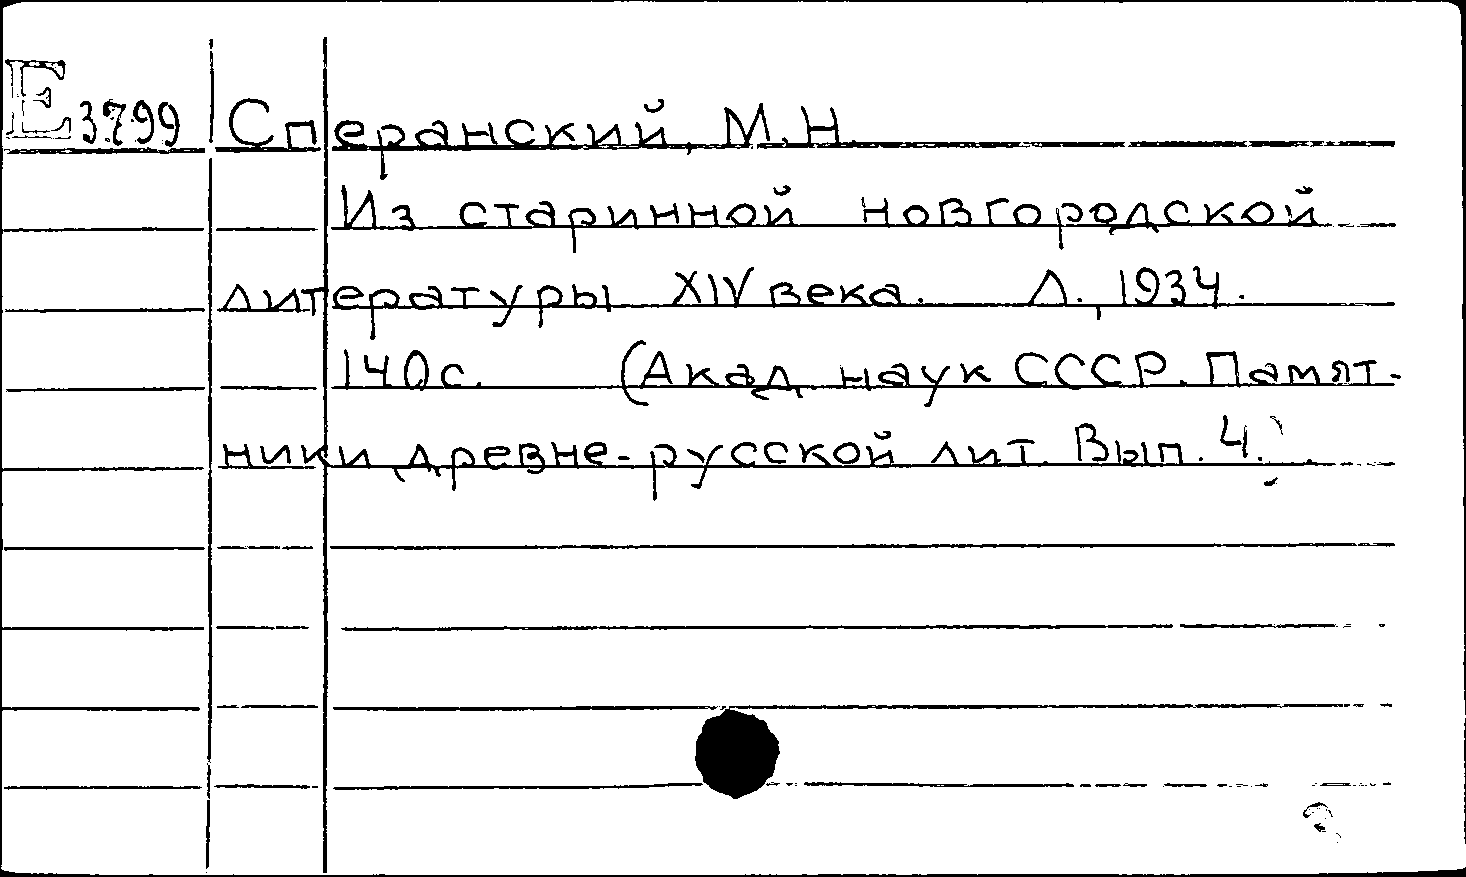 Е 3799 Сперанский, М.Н.
Из старинной новгородской
литературы XIV века. Л., 1934.
140 с. (Акад. наук СССР. Памят-
ники древне-русской лит. Вып. 4.)